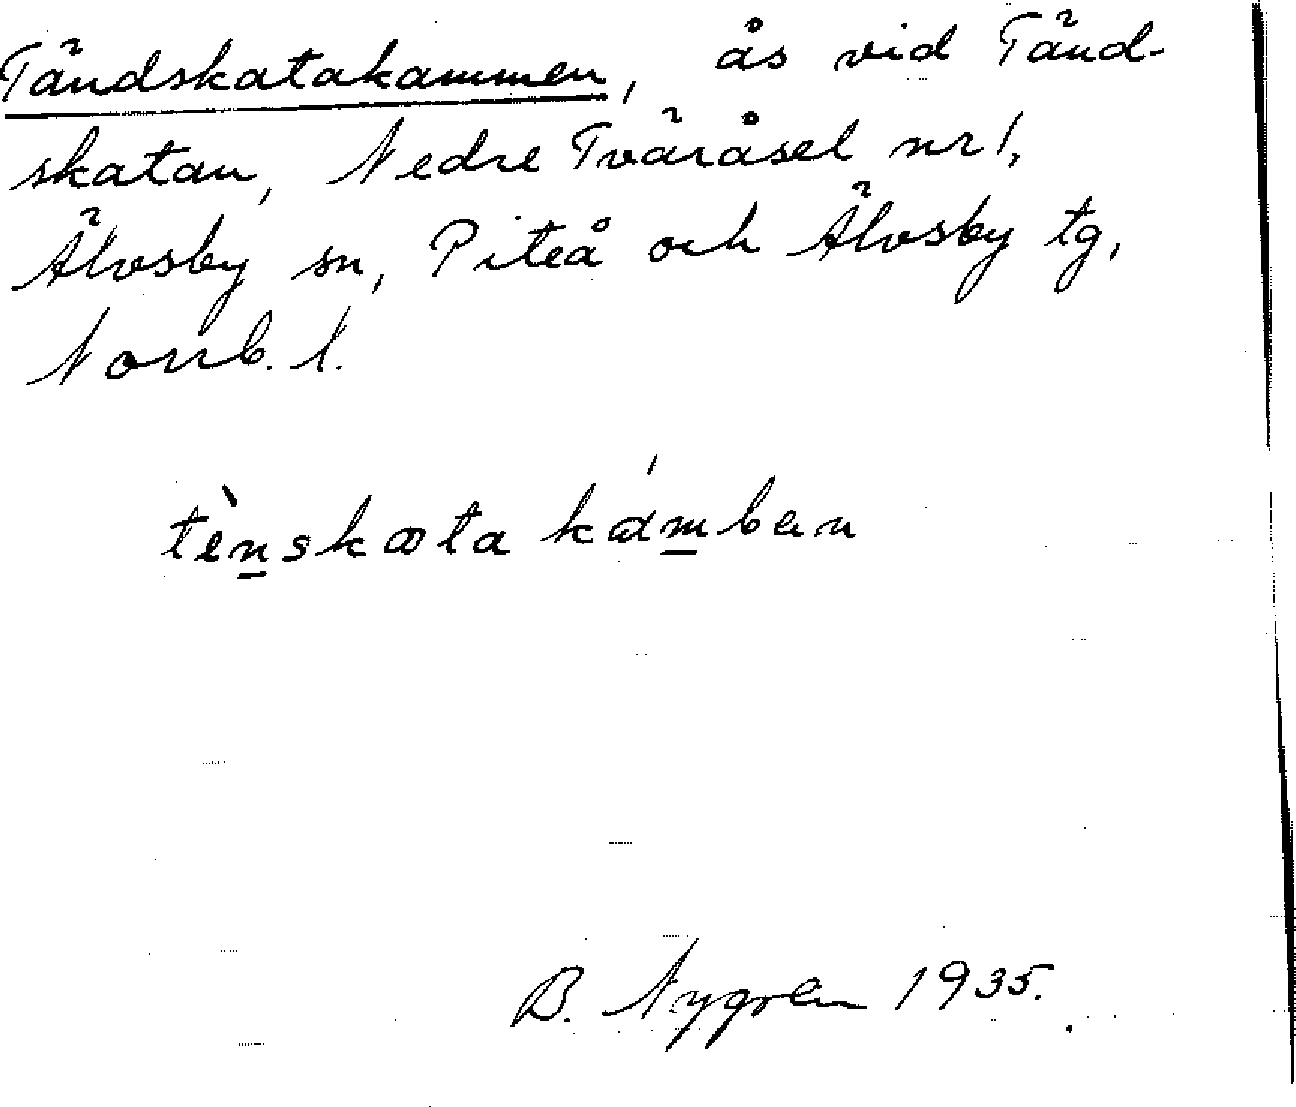 Tändskatakammen, ås vid Tänd-
skatan, Nedre Tväråsel nr 1,
Älvsby sn, Piteå och Älvsby tg,
Norrb. l.
tènskata kámban
B. Nygren 1935.